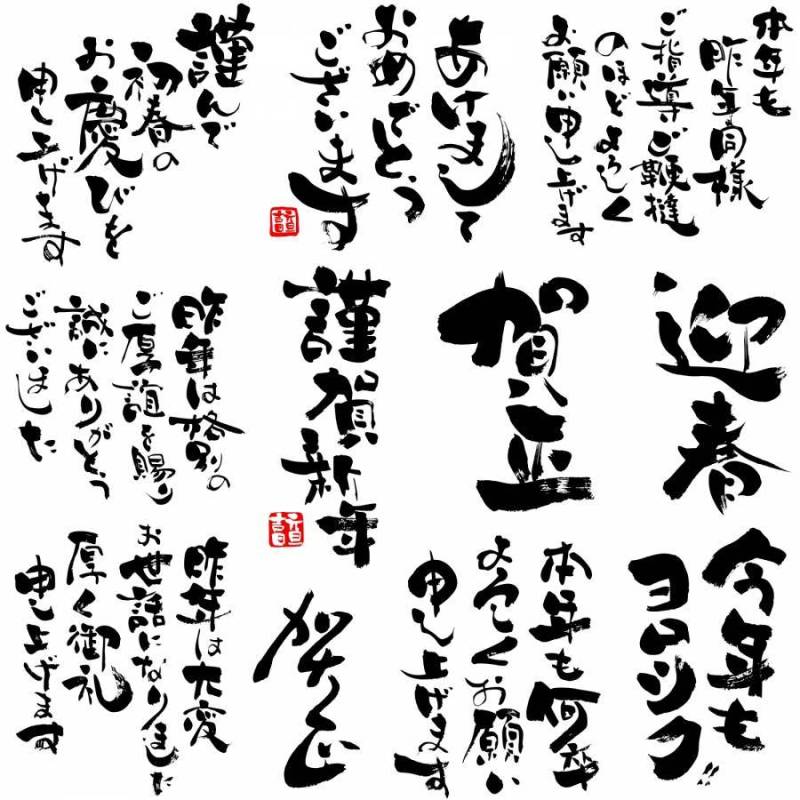 謹んで
初春の
お慶びを
申し上げます
あけまして
おめでとう
ございます
本年も
昨年同様
ご指導ご鞭撻
のほどよろしく
お願い申し上げます
昨年は格別の
ご厚誼を賜り
誠にありがとう
ございました
謹賀新年
賀正
迎春
昨年は大変
お世話になりました
厚く御礼
申し上げます
賀正
本年も何卒
よろしくお願い
申し上げます
今年も
ヨロシク!!